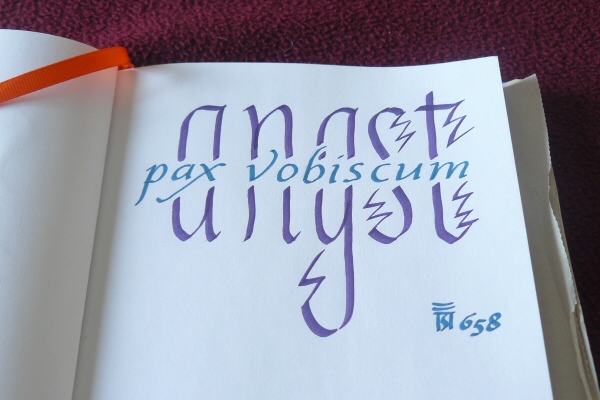 angst
pax vobiscum
658